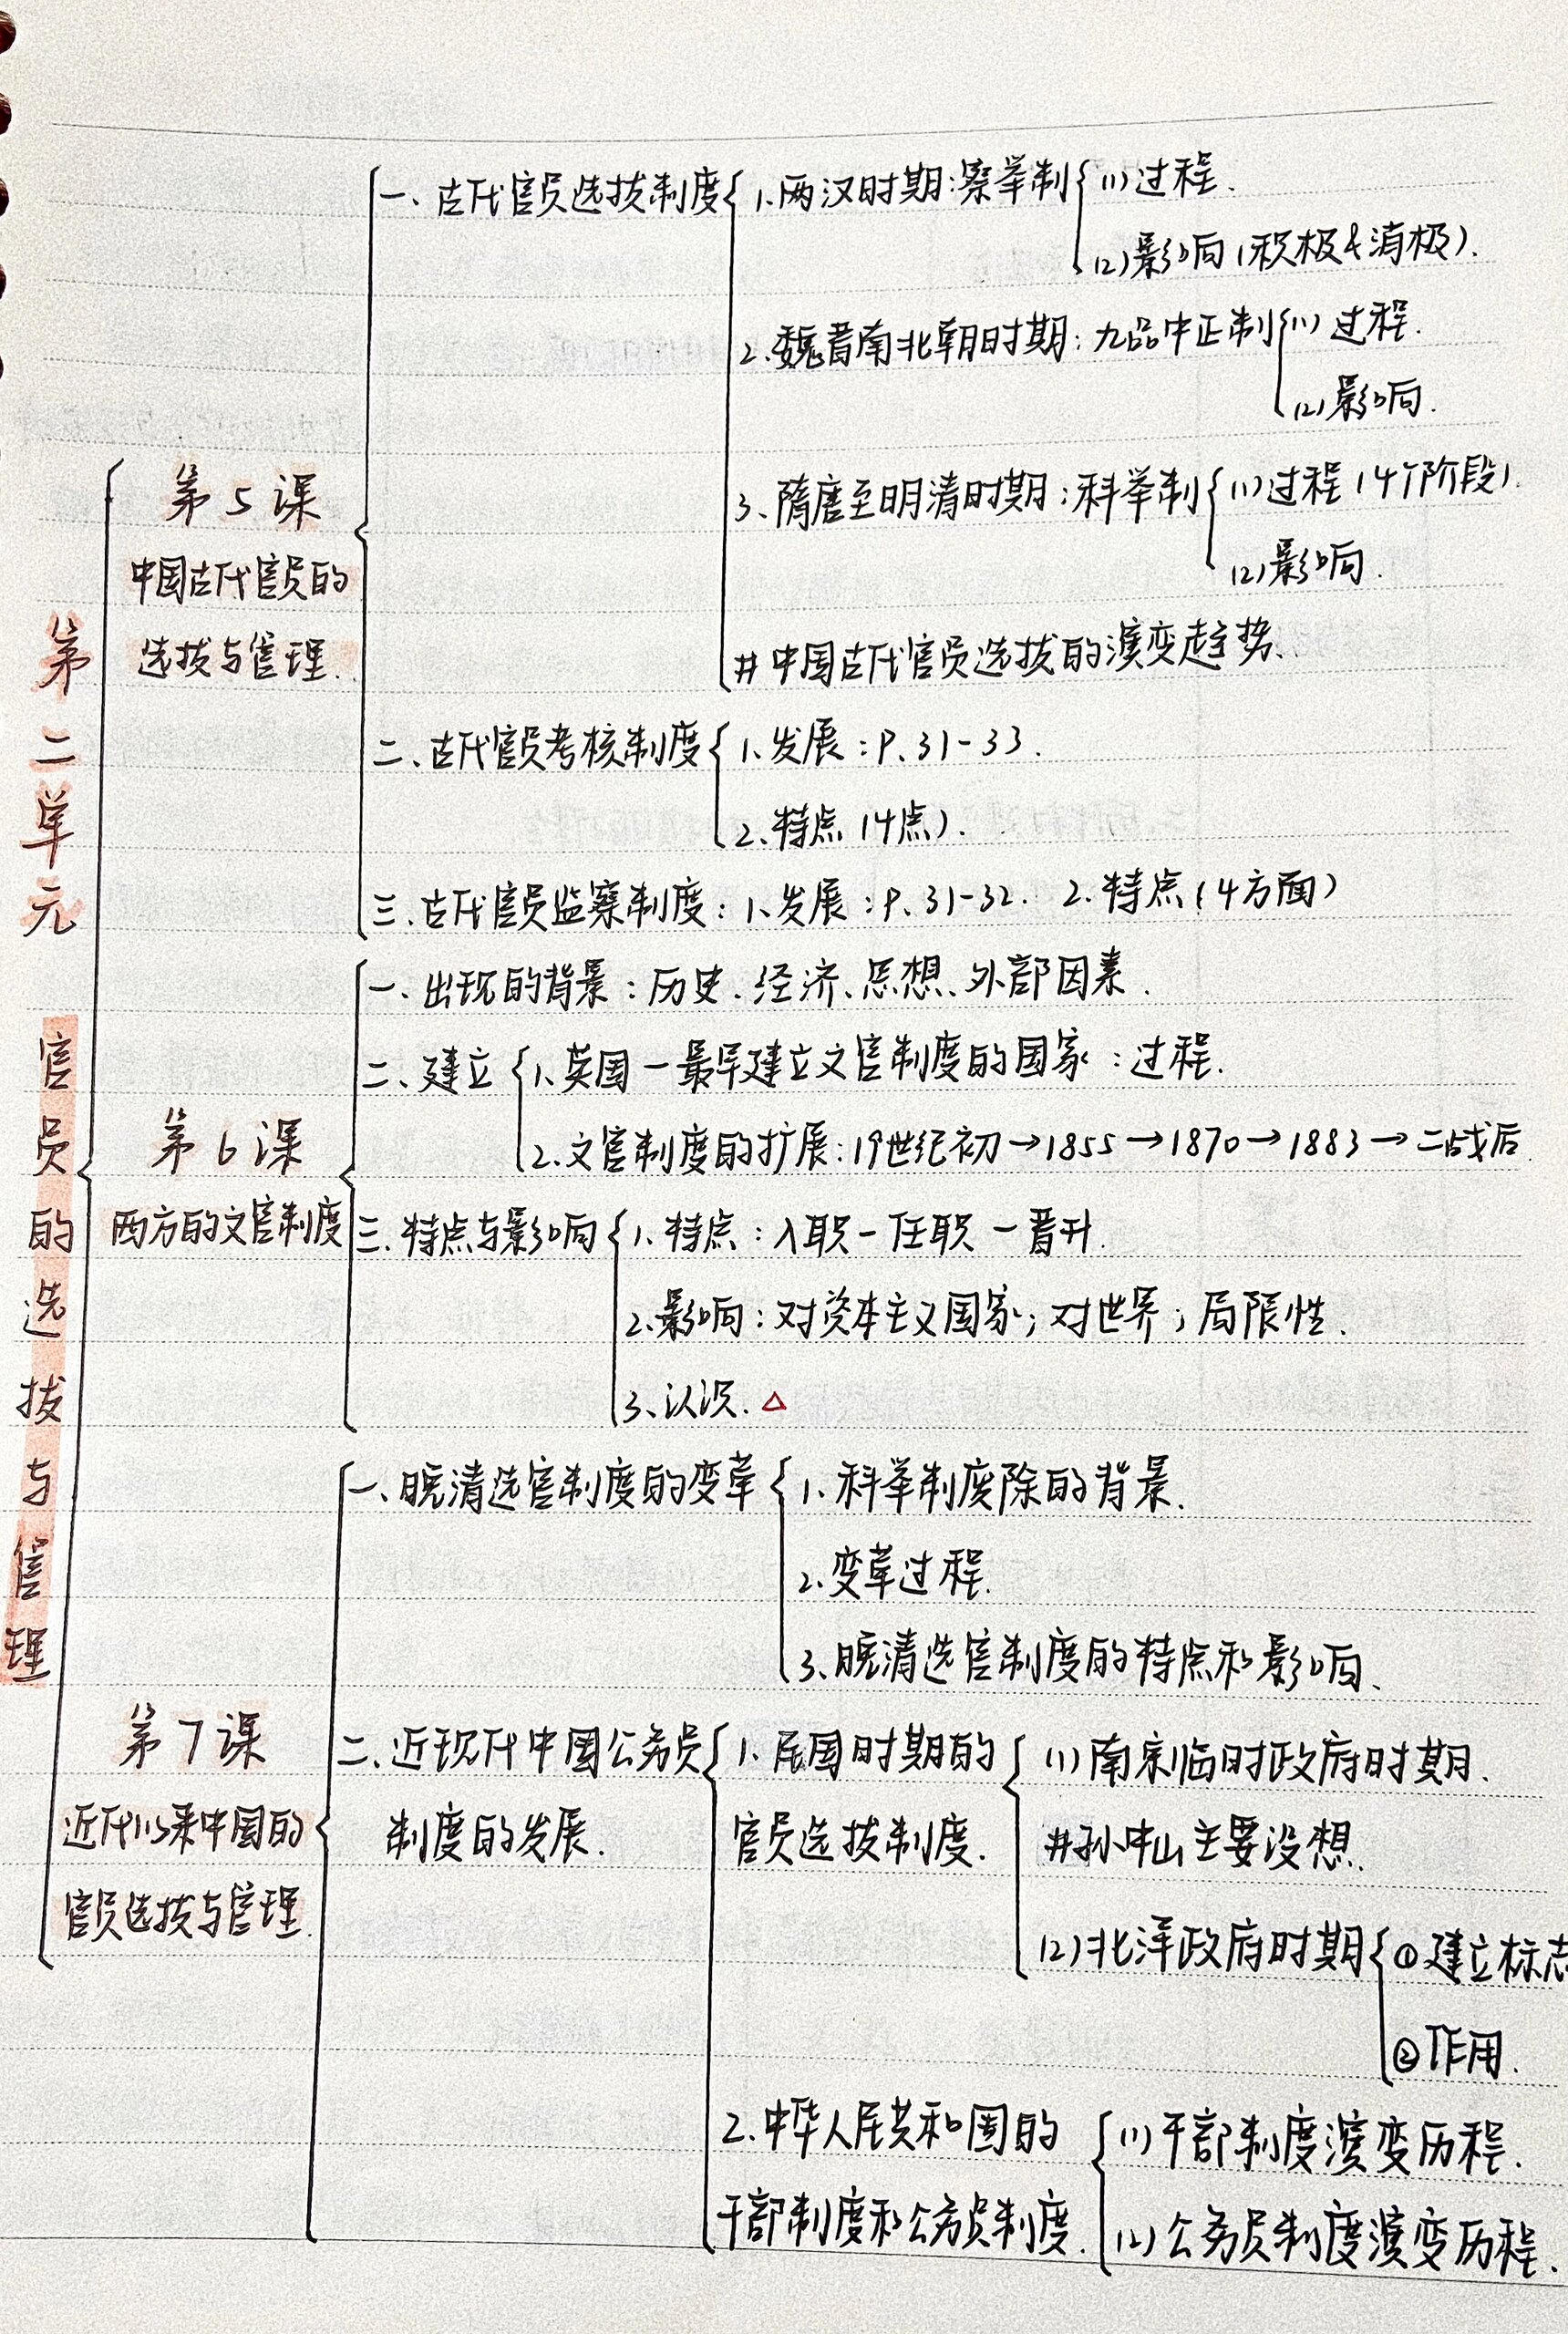 第二单元 官员的选拔与管理
第5课
中国古代官员的
选拔与管理.
一、古代官员选拔制度
1.两汉时期:察举制
(1)过程.
(2)影响(积极&消极).
2.魏晋南北朝时期:九品中正制
(1)过程.
(2)影响.
3、隋唐至明清时期:科举制
(1)过程(4个阶段).
(2)影响.
#中国古代官员选拔的演变趋势.
二、古代官员考核制度
1、发展:P.31-33.
2.特点(4点).
三.古代官员监察制度:1、发展:P.31-32. 2.特点(4方面)
第6课
西方的文官制度
一、出现的背景:历史.经济、思想、外部因素.
二、建立
1、英国—最早建立文官制度的国家:过程.
2.文官制度的扩展:19世纪初→1855→1870→1883→二战后.
三.特点与影响
1、特点:入职—任职—晋升.
2.影响:对资本主义国家;对世界;局限性.
3、认识.△
第7课
近代以来中国的
官员选拔与管理.
一、晚清选官制度的变革
1、科举制废除的背景.
2.变革过程.
3、晚清选官制度的特点和影响、
二、近现代中国公务员
制度的发展.
1.民国时期的
官员选拔制度.
(1)南京临时政府时期、
#孙中山主要设想.
(2)北洋政府时期
①建立标志
②作用.
2.中华人民共和国的
干部制度和公务员制度.
(1)干部制度演变历程.
(2)公务员制度演变历程.